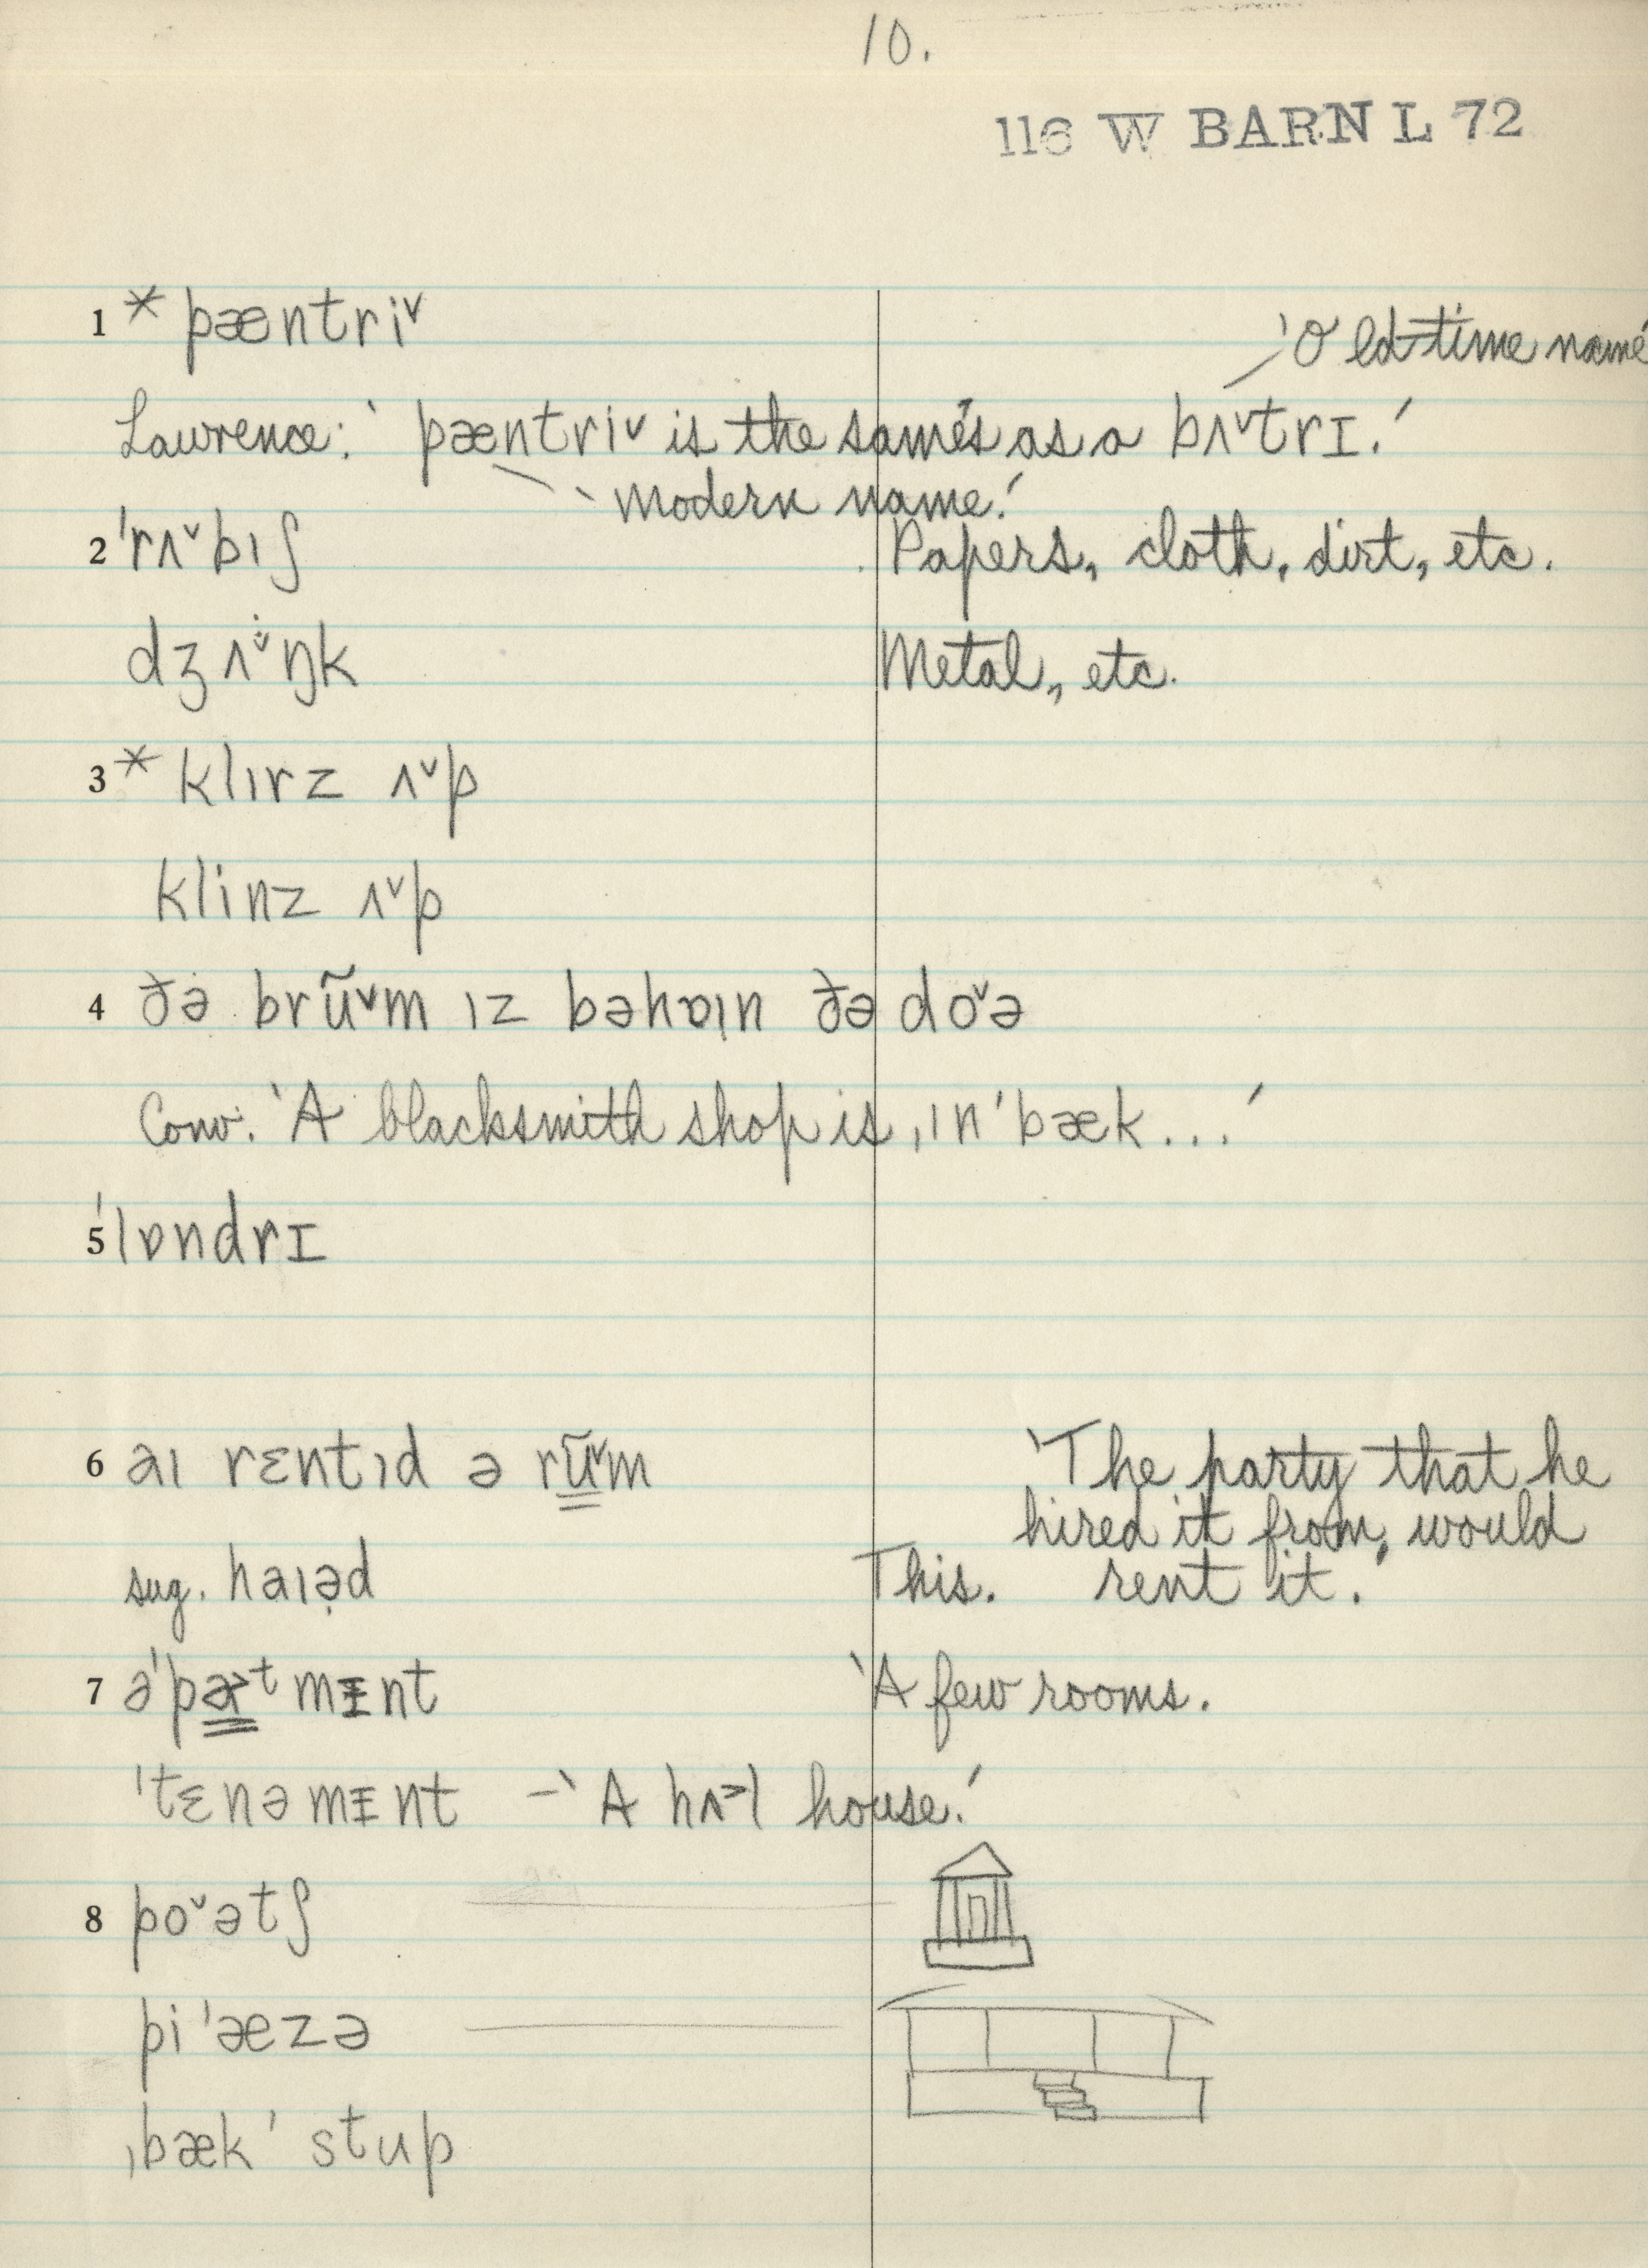 10.
116 W BARN L 72
1 * pæntriˇ
'Old-time name'
Lawrence: 'pæntriˇ is the same's as a bʌˇtrɪ.'
'Modern name.'
2 ˈrʌˇbɪʃ Papers, cloth, dirt, etc.
dʒʌˇŋk Metal, etc.
3 * klɪrz ʌˇp
klinz ʌˇp
4 ðə brũˇm ɪz bəhɒɪn ðə doˇə
Conv. 'A blacksmith shop is ˌɪn ˈbæk...'
5 ˈlɒndrɪ
6 aɪ rɛntɪd ə rũˇm 'The party that he
hired it from, would
sug. haɪəd This. rent it.'
7 əˈpaˑtmɪnt 'A few rooms.
ˈtɛnəmɪnt – 'A hʌ˃l house.'
8 poˇətʃ
piˈæzə
ˌbækˈstup